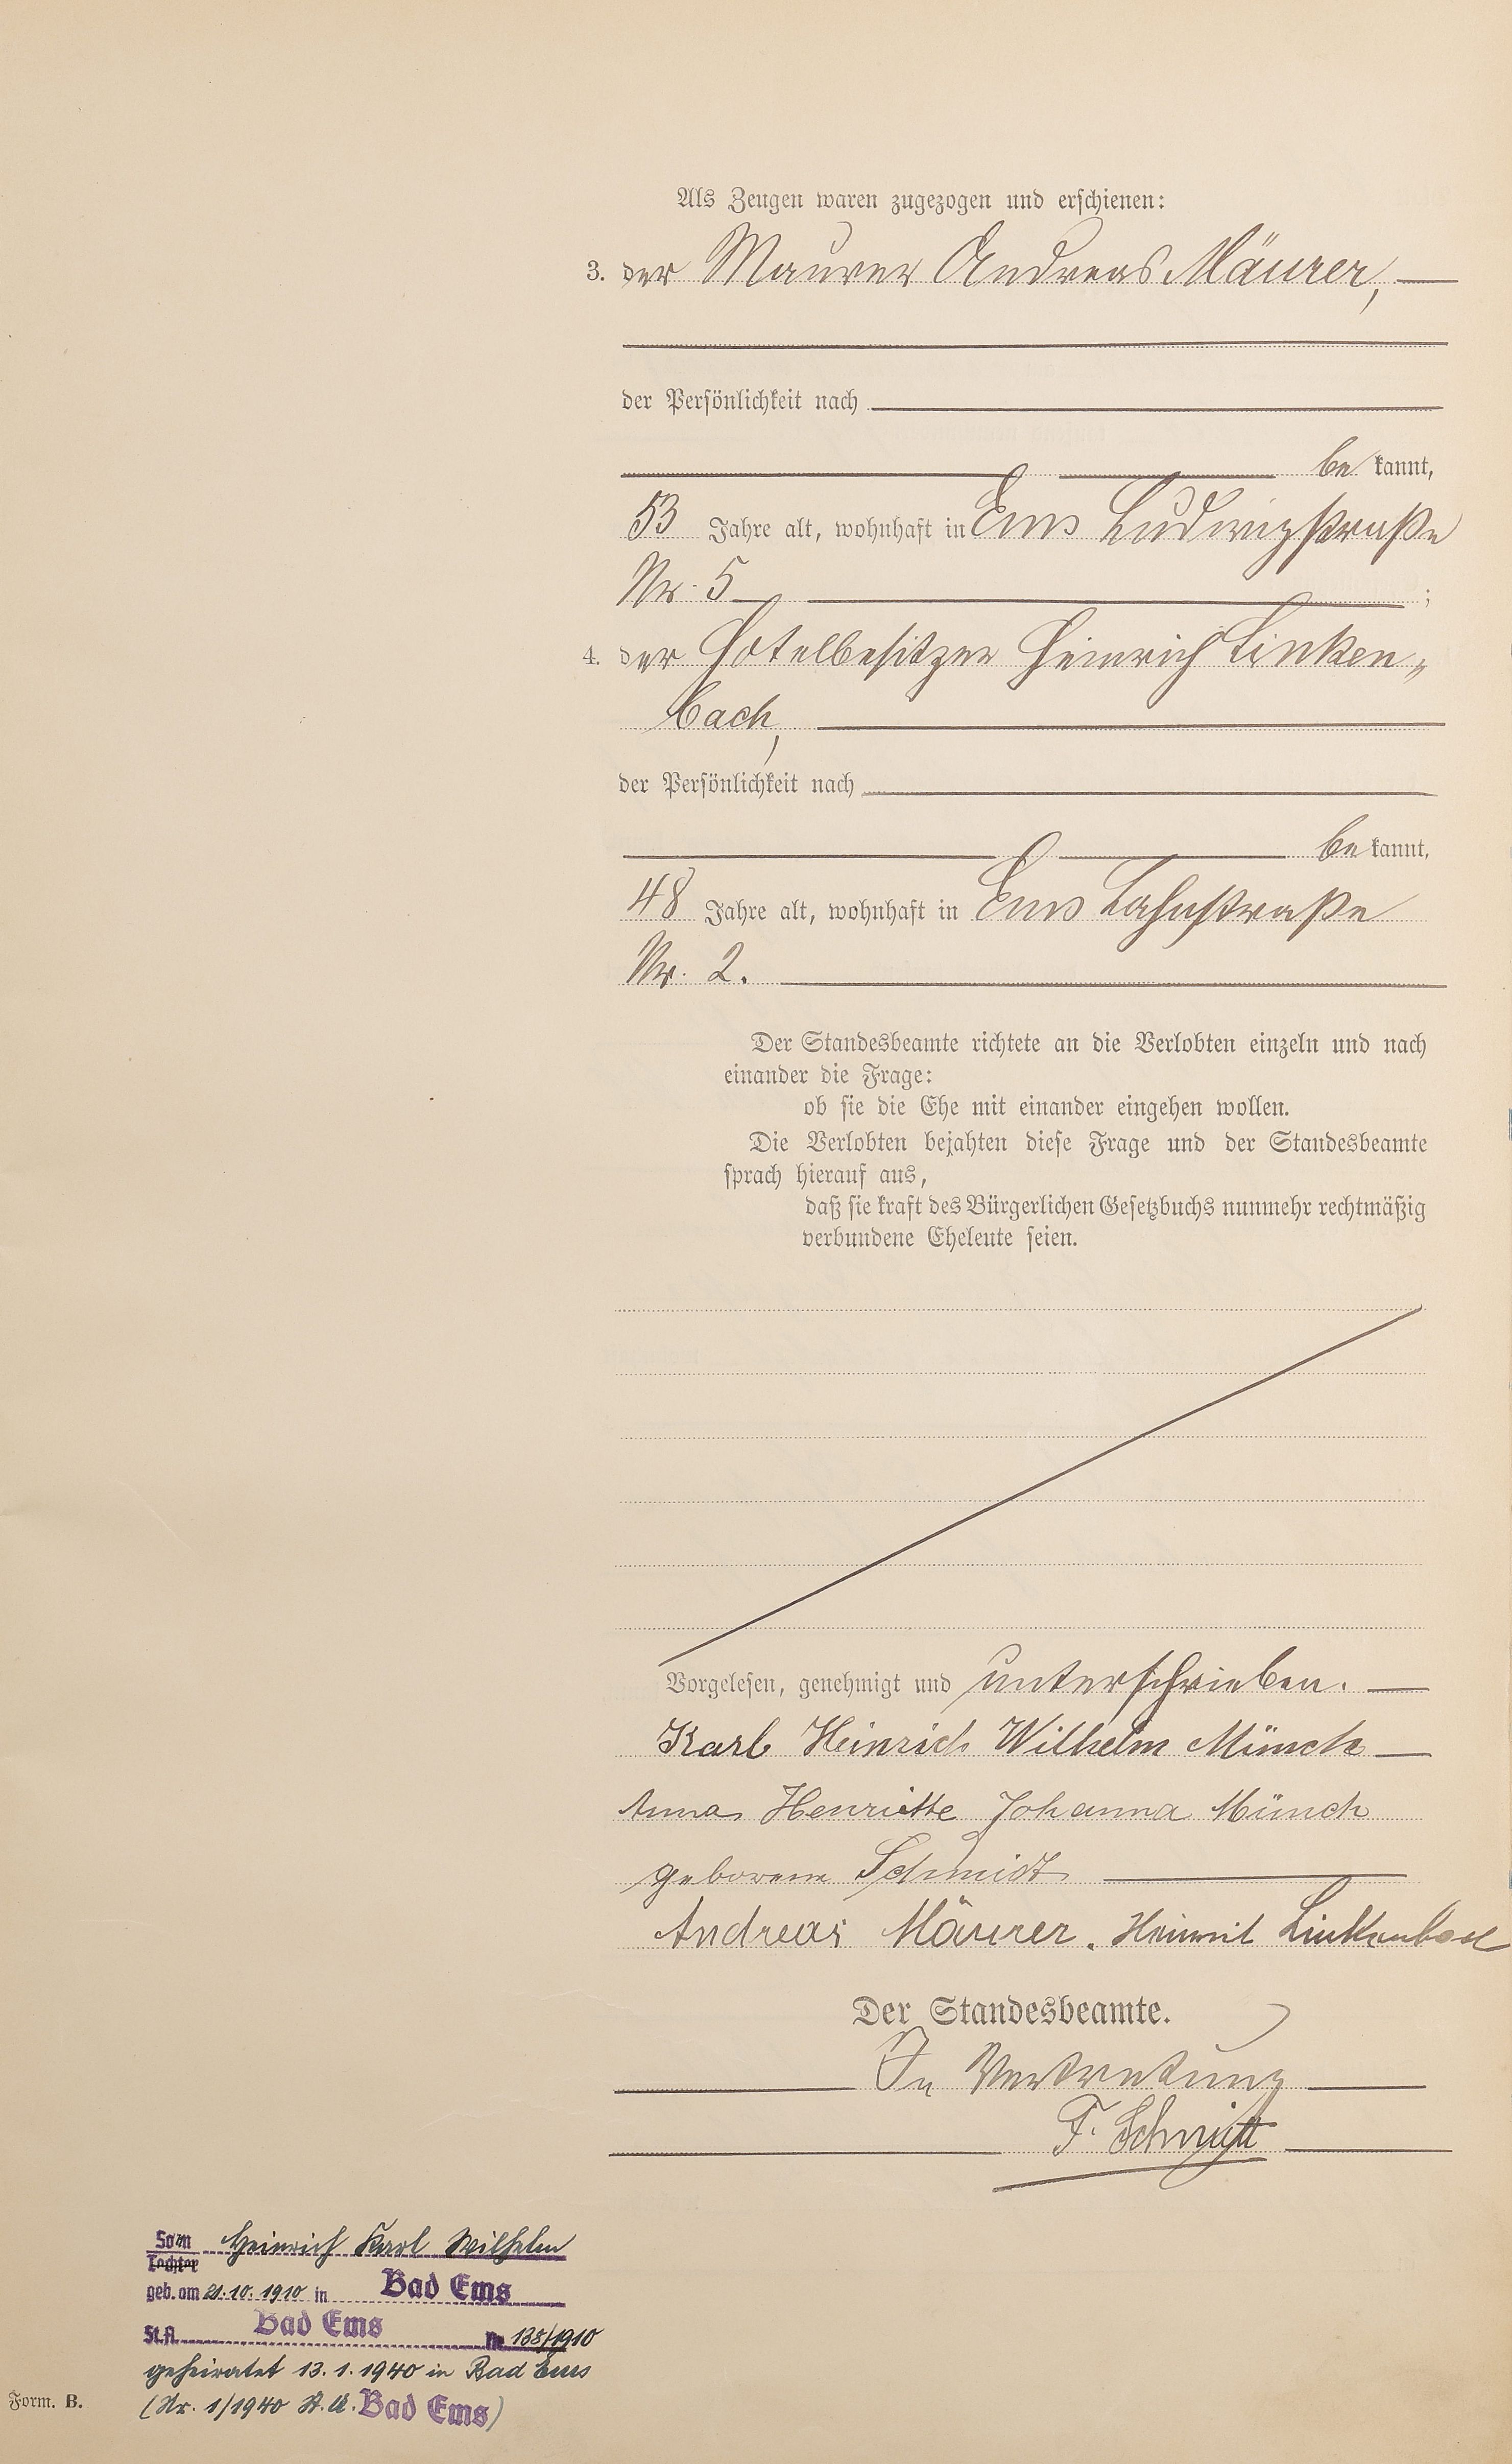 Als Zeugen waren zugezogen und erschienen:
3. der Maurer Andreas Mäurer,
der Persönlichkeit nach
be kannt,
53 Jahre alt, wohnhaft in Ems Ludwigstraße
Nr. 5 ;
4. der Hotelbesitzer Heinrich Linken„
bach,
der Persönlichkeit nach
be kannt,
48 Jahre alt, wohnhaft in Ems Lahnstraße
Nr. 2.
Der Standesbeamte richtete an die Verlobten einzeln und nach
einander die Frage:
ob sie die Ehe mit einander eingehen wollen.
Die Verlobten bejahten diese Frage und der Standesbeamte
sprach hierauf aus,
daß sie kraft des Bürgerlichen Gesetzbuchs nunmehr rechtmäßig
verbundene Eheleute seien.
Vorgelesen, genehmigt und unterschrieben.
Karl Heinrich Wilhelm Münch
Anna Henriette Johanna Münch
geborene Schmidt
Andreas Mäurer. Heinrich Linkenbach
Der Standesbeamte.
In Vertretung
F. Schmitt
Sohn Heinrich Karl Wilhelm
Tochter
geb. am 21.10.1910 in Bad Ems
St.A. Bad Ems Nr. 138/1910
geheiratet 13.1.1940 in Bad Ems
(Nr. 1/1940 St.A. Bad Ems)
Form. B.